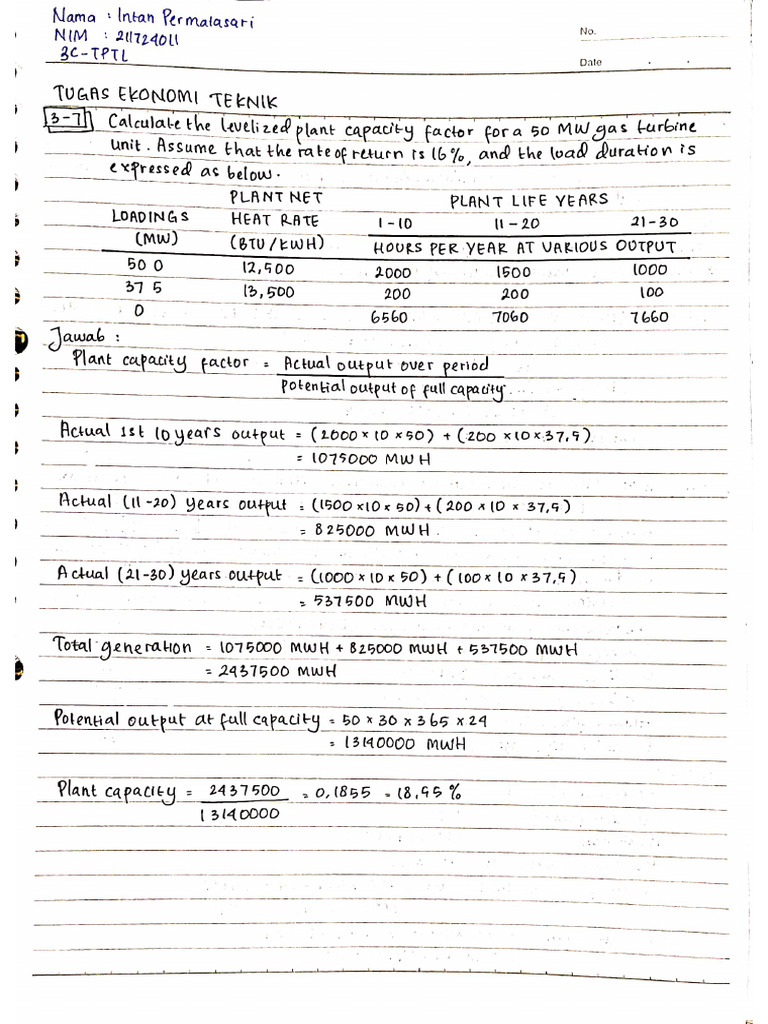 Nama : Intan Permalasari
NIM : 211724011
3C-TPTL
No.
Date
TUGAS EKONOMI TEKNIK
3-7 Calculate the levelized plant capacity factor for a 50 MW gas turbine
unit. Assume that the rate of return is 16%, and the load duration is
expressed as below.
PLANT NET PLANT LIFE YEARS
LOADINGS HEAT RATE 1-10 11-20 21-30
(MW) (BTU/KWH) HOURS PER YEAR AT VARIOUS OUTPUT
50 0 12,500 2000 1500 1000
37 5 13,500 200 200 100
0 6560 7060 7660
Jawab :
Plant capacity factor = Actual output over period
Potential output of full capacity
Actual 1st 10 years output = (2000 × 10 × 50) + (200 × 10 × 37,5)
= 1075000 MWH
Actual (11-20) years output = (1500 × 10 × 50) + (200 × 10 × 37,5)
= 825000 MWH
Actual (21-30) years output = (1000 × 10 × 50) + (100 × 10 × 37,5)
= 537500 MWH
Total generation = 1075000 MWH + 825000 MWH + 537500 MWH
= 2437500 MWH
Potential output at full capacity = 50 × 30 × 365 × 24
= 13140000 MWH
Plant capacity = 2437500 = 0,1855 = 18,55 %
13140000